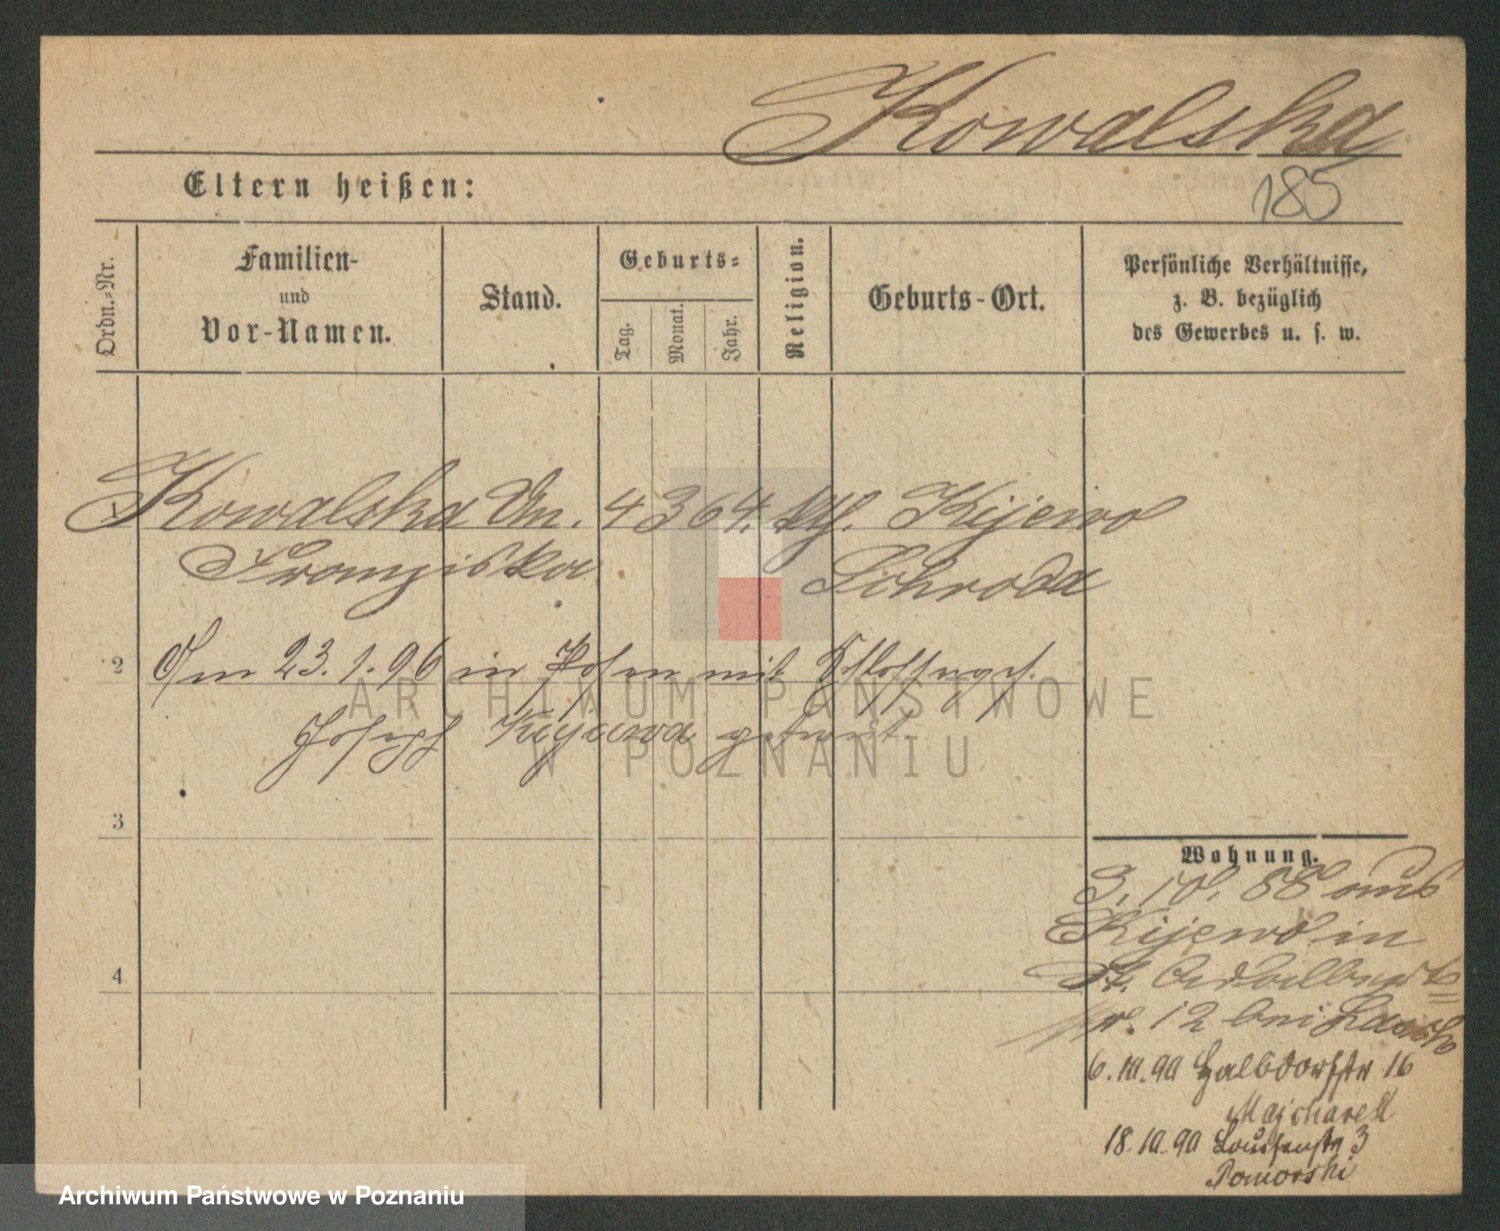 Kowalska
185
Eltern heißen:
Ordn.-Nr.
Familien-
und
Vor-Namen.
Stand.
Geburts-
Tag.
Monat.
Jahr.
Religion.
Geburts-Ort.
Persönliche Verhältnisse,
z. B. bezüglich
des Gewerbes u. s. w.
Kowalska Un. 4 3 64. kth. Kijewo
Franziska Schroda
2 Am 23.1.96 in Posen mit Schlosserges.
Joseph Kujawa getraut.
3
Wohnung.
3. 10. 88 aus
Kijewo in
4 St. Adalbert=
Nr. 12 bei
6.10.90 Halbdorfstr 16
Majcharek
18.10.90 Louisenstr 3
Pomorski
ARCHIWUM PAŃSTWOWE
W POZNANIU
Archiwum Państwowe w Poznaniu